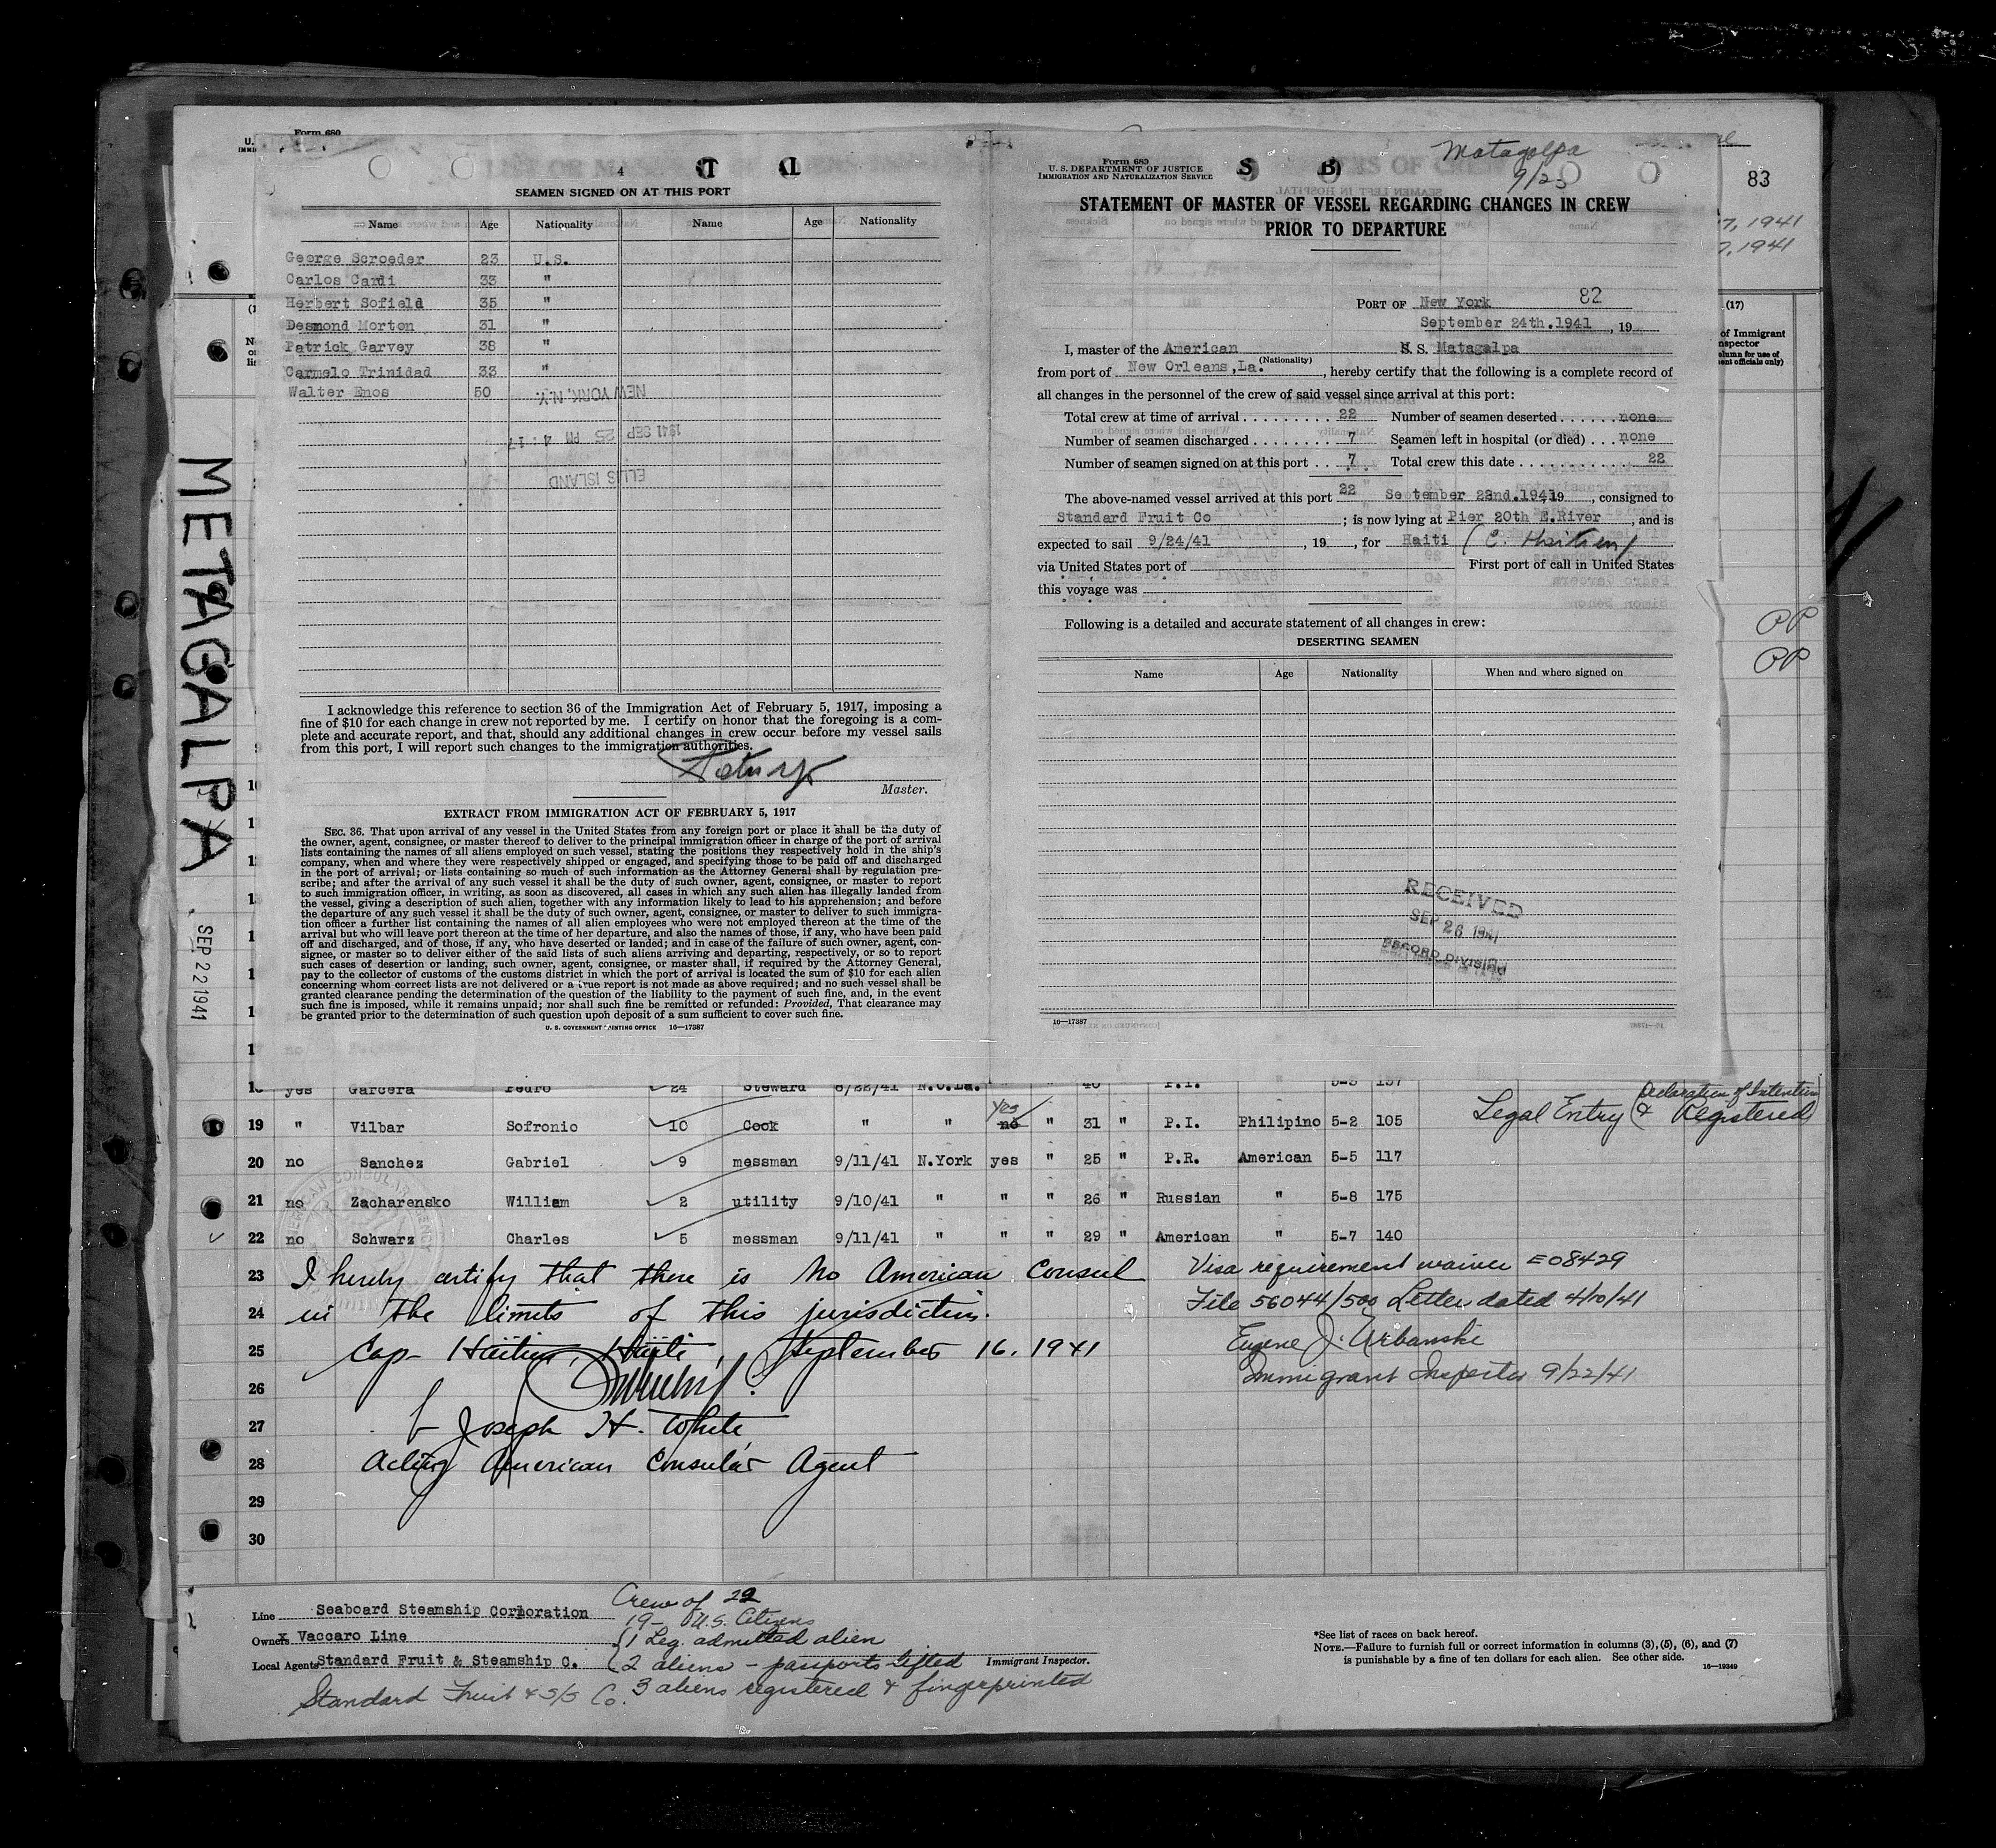 Form 680
4
T L
SEAMEN SIGNED ON AT THIS PORT
Name Age Nationality Name Age Nationality
George Scroeder 23 U.S.
Carlos Cardi 33 "
Herbert Sofield 35 "
Desmond Morton 31 "
Patrick Garvey 38 "
Carmelo Trinidad 33 "
Walter Enos 50
NEW YORK, N.Y.
1941 SEP 25 PM 4:17
ELLIS ISLAND
I acknowledge this reference to section 36 of the Immigration Act of February 5, 1917, imposing a
fine of $10 for each change in crew not reported by me. I certify on honor that the foregoing is a com-
plete and accurate report, and that, should any additional changes in crew occur before my vessel sails
from this port, I will report such changes to the immigration authorities.
Master.
EXTRACT FROM IMMIGRATION ACT OF FEBRUARY 5, 1917
SEC. 36. That upon arrival of any vessel in the United States from any foreign port or place it shall be the duty of
the owner, agent, consignee, or master thereof to deliver to the principal immigration officer in charge of the port of arrival
lists containing the names of all aliens employed on such vessel, stating the positions they respectively hold in the ship's
company, when and where they were respectively shipped or engaged, and specifying those to be paid off and discharged
in the port of arrival; or lists containing so much of such information as the Attorney General shall by regulation pre-
scribe; and after the arrival of any such vessel it shall be the duty of such owner, agent, consignee, or master to report
to such immigration officer, in writing, as soon as discovered, all cases in which any such alien has illegally landed from
the vessel, giving a description of such alien, together with any information likely to lead to his apprehension; and before
the departure of any such vessel it shall be the duty of such owner, agent, consignee, or master to deliver to such immigra-
tion officer a further list containing the names of all alien employees who were not employed thereon at the time of the
arrival but who will leave port thereon at the time of her departure, and also the names of those, if any, who have been paid
off and discharged, and of those, if any, who have deserted or landed; and in case of the failure of such owner, agent, con-
signee, or master so to deliver either of the said lists of such aliens arriving and departing, respectively, or so to report
such cases of desertion or landing, such owner, agent, consignee, or master shall, if required by the Attorney General,
pay to the collector of customs of the customs district in which the port of arrival is located the sum of $10 for each alien
concerning whom correct lists are not delivered or a true report is not made as above required; and no such vessel shall be
granted clearance pending the determination of the question of the liability to the payment of such fine, and, in the event
such fine is imposed, while it remains unpaid; nor shall such fine be remitted or refunded: Provided, That clearance may
be granted prior to the determination of such question upon deposit of a sum sufficient to cover such fine.
U. S. GOVERNMENT PRINTING OFFICE 16—17387
Form 689
U. S. DEPARTMENT OF JUSTICE
IMMIGRATION AND NATURALIZATION SERVICE
S B
Matagalpa
9/25
STATEMENT OF MASTER OF VESSEL REGARDING CHANGES IN CREW
PRIOR TO DEPARTURE
PORT OF New York 82
September 24th.1941 , 19
I, master of the American S. S. Matagalpa
(Nationality)
from port of New Orleans,La. , hereby certify that the following is a complete record of
all changes in the personnel of the crew of said vessel since arrival at this port:
Total crew at time of arrival 22 Number of seamen deserted none
Number of seamen discharged 7 Seamen left in hospital (or died) none
Number of seamen signed on at this port 7 Total crew this date 22
The above-named vessel arrived at this port 22 September 22nd.1941,19 , consigned to
Standard Fruit Co ; is now lying at Pier 20th E.River , and is
expected to sail 9/24/41 , 19 , for Haiti (C. Haitien)
via United States port of First port of call in United States
this voyage was
Following is a detailed and accurate statement of all changes in crew:
DESERTING SEAMEN
Name Age Nationality When and where signed on
RECEIVED
SEP 26 1941
RECORD DIVISION
16—17387
83
7, 1941
7, 1941
(17)
of Immigrant
nspector
olumn for use of
ent officials only)
PP
PP
METAGALPA
SEP 22 1941
18 yes Garcera Pedro 24 Steward 8/22/41 N.O.La. " 40 " P.I. " 5-5 157
19 " Vilbar Sofronio 10 Cook " " no yes " 31 " P.I. Philipino 5-2 105 Legal Entry (Declaration of Intention & Registered)
20 no Sanchez Gabriel 9 messman 9/11/41 N.York yes " 25 " P.R. American 5-5 117
21 no Zacharensko William 2 utility 9/10/41 " " " 26 " Russian " 5-8 175
22 no Schwarz Charles 5 messman 9/11/41 " " " 29 " American " 5-7 140
23 I hereby certify that there is no American Consul Visa requirement waiver E08429
24 in the limits of this jurisdiction. File 56044/500 Letter dated 4/10/41
25 Cap-Haitien, Haiti, September 16. 1941 Eugene J. Urbanski
26 Immigrant Inspector 9/22/41
27 Joseph H. White
28 Acting American Consular Agent
29
30
Line Seaboard Steamship Corporation
Owners x Vaccaro Line
Local Agents Standard Fruit & Steamship C.
Standard Fruit & S/S Co.
Crew of 22
19- U.S. Citizens
1 Leg. admitted alien
2 aliens - passports lifted Immigrant Inspector.
3 aliens registered & fingerprinted
*See list of races on back hereof.
NOTE.—Failure to furnish full or correct information in columns (3), (5), (6), and (7)
is punishable by a fine of ten dollars for each alien. See other side.
16—19349